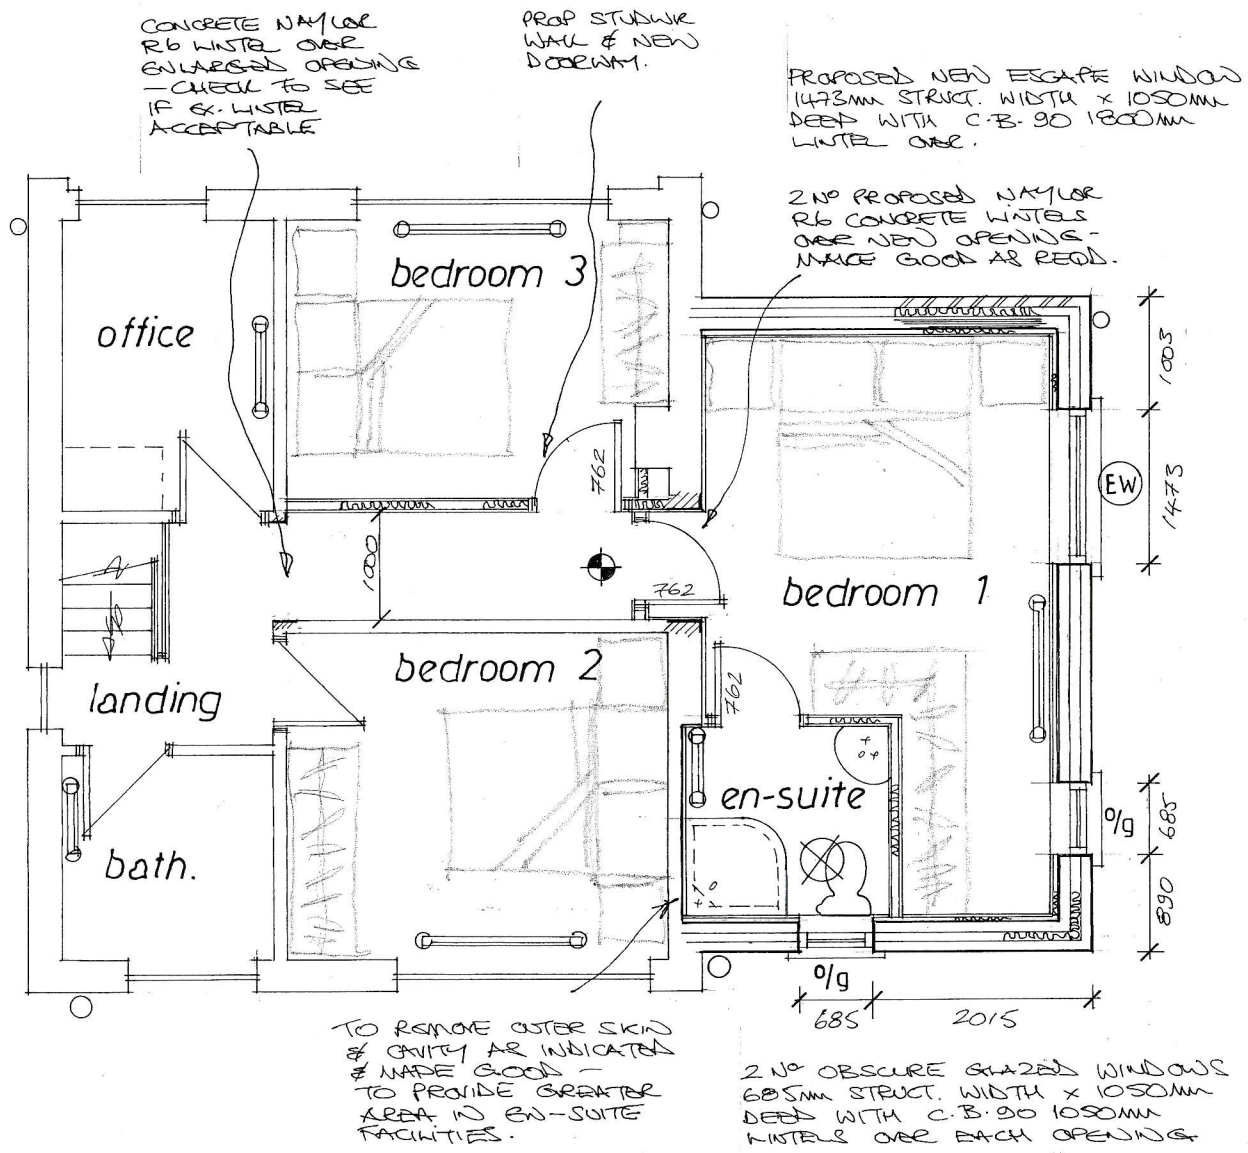 CONCRETE NAYLOR
R6 LINTEL OVER
ENLARGED OPENING
– CHECK TO SEE
IF EX. LINTEL
ACCEPTABLE
PROP STUDWK
WALL & NEW
DOORWAY.
PROPOSED NEW ESCAPE WINDOW
1473mm STRUCT. WIDTH x 1050mm
DEEP WITH C.B. 90 1800mm
LINTEL OVER.
2 No PROPOSED NAYLOR
R6 CONCRETE LINTELS
OVER NEW OPENING –
MAKE GOOD AS REQD.
bedroom 3
office
1003
762
EW
1473
1000
762
bedroom 1
bedroom 2
landing
762
en-suite
o/g
685
bath.
890
o/g
685
2015
TO REMOVE OUTER SKIN
& CAVITY AS INDICATED
& MADE GOOD –
TO PROVIDE GREATER
AREA IN EN-SUITE
FACILITIES.
2 No OBSCURE GLAZED WINDOWS
685mm STRUCT. WIDTH x 1050mm
DEEP WITH C.B. 90 1050mm
LINTELS OVER EACH OPENING